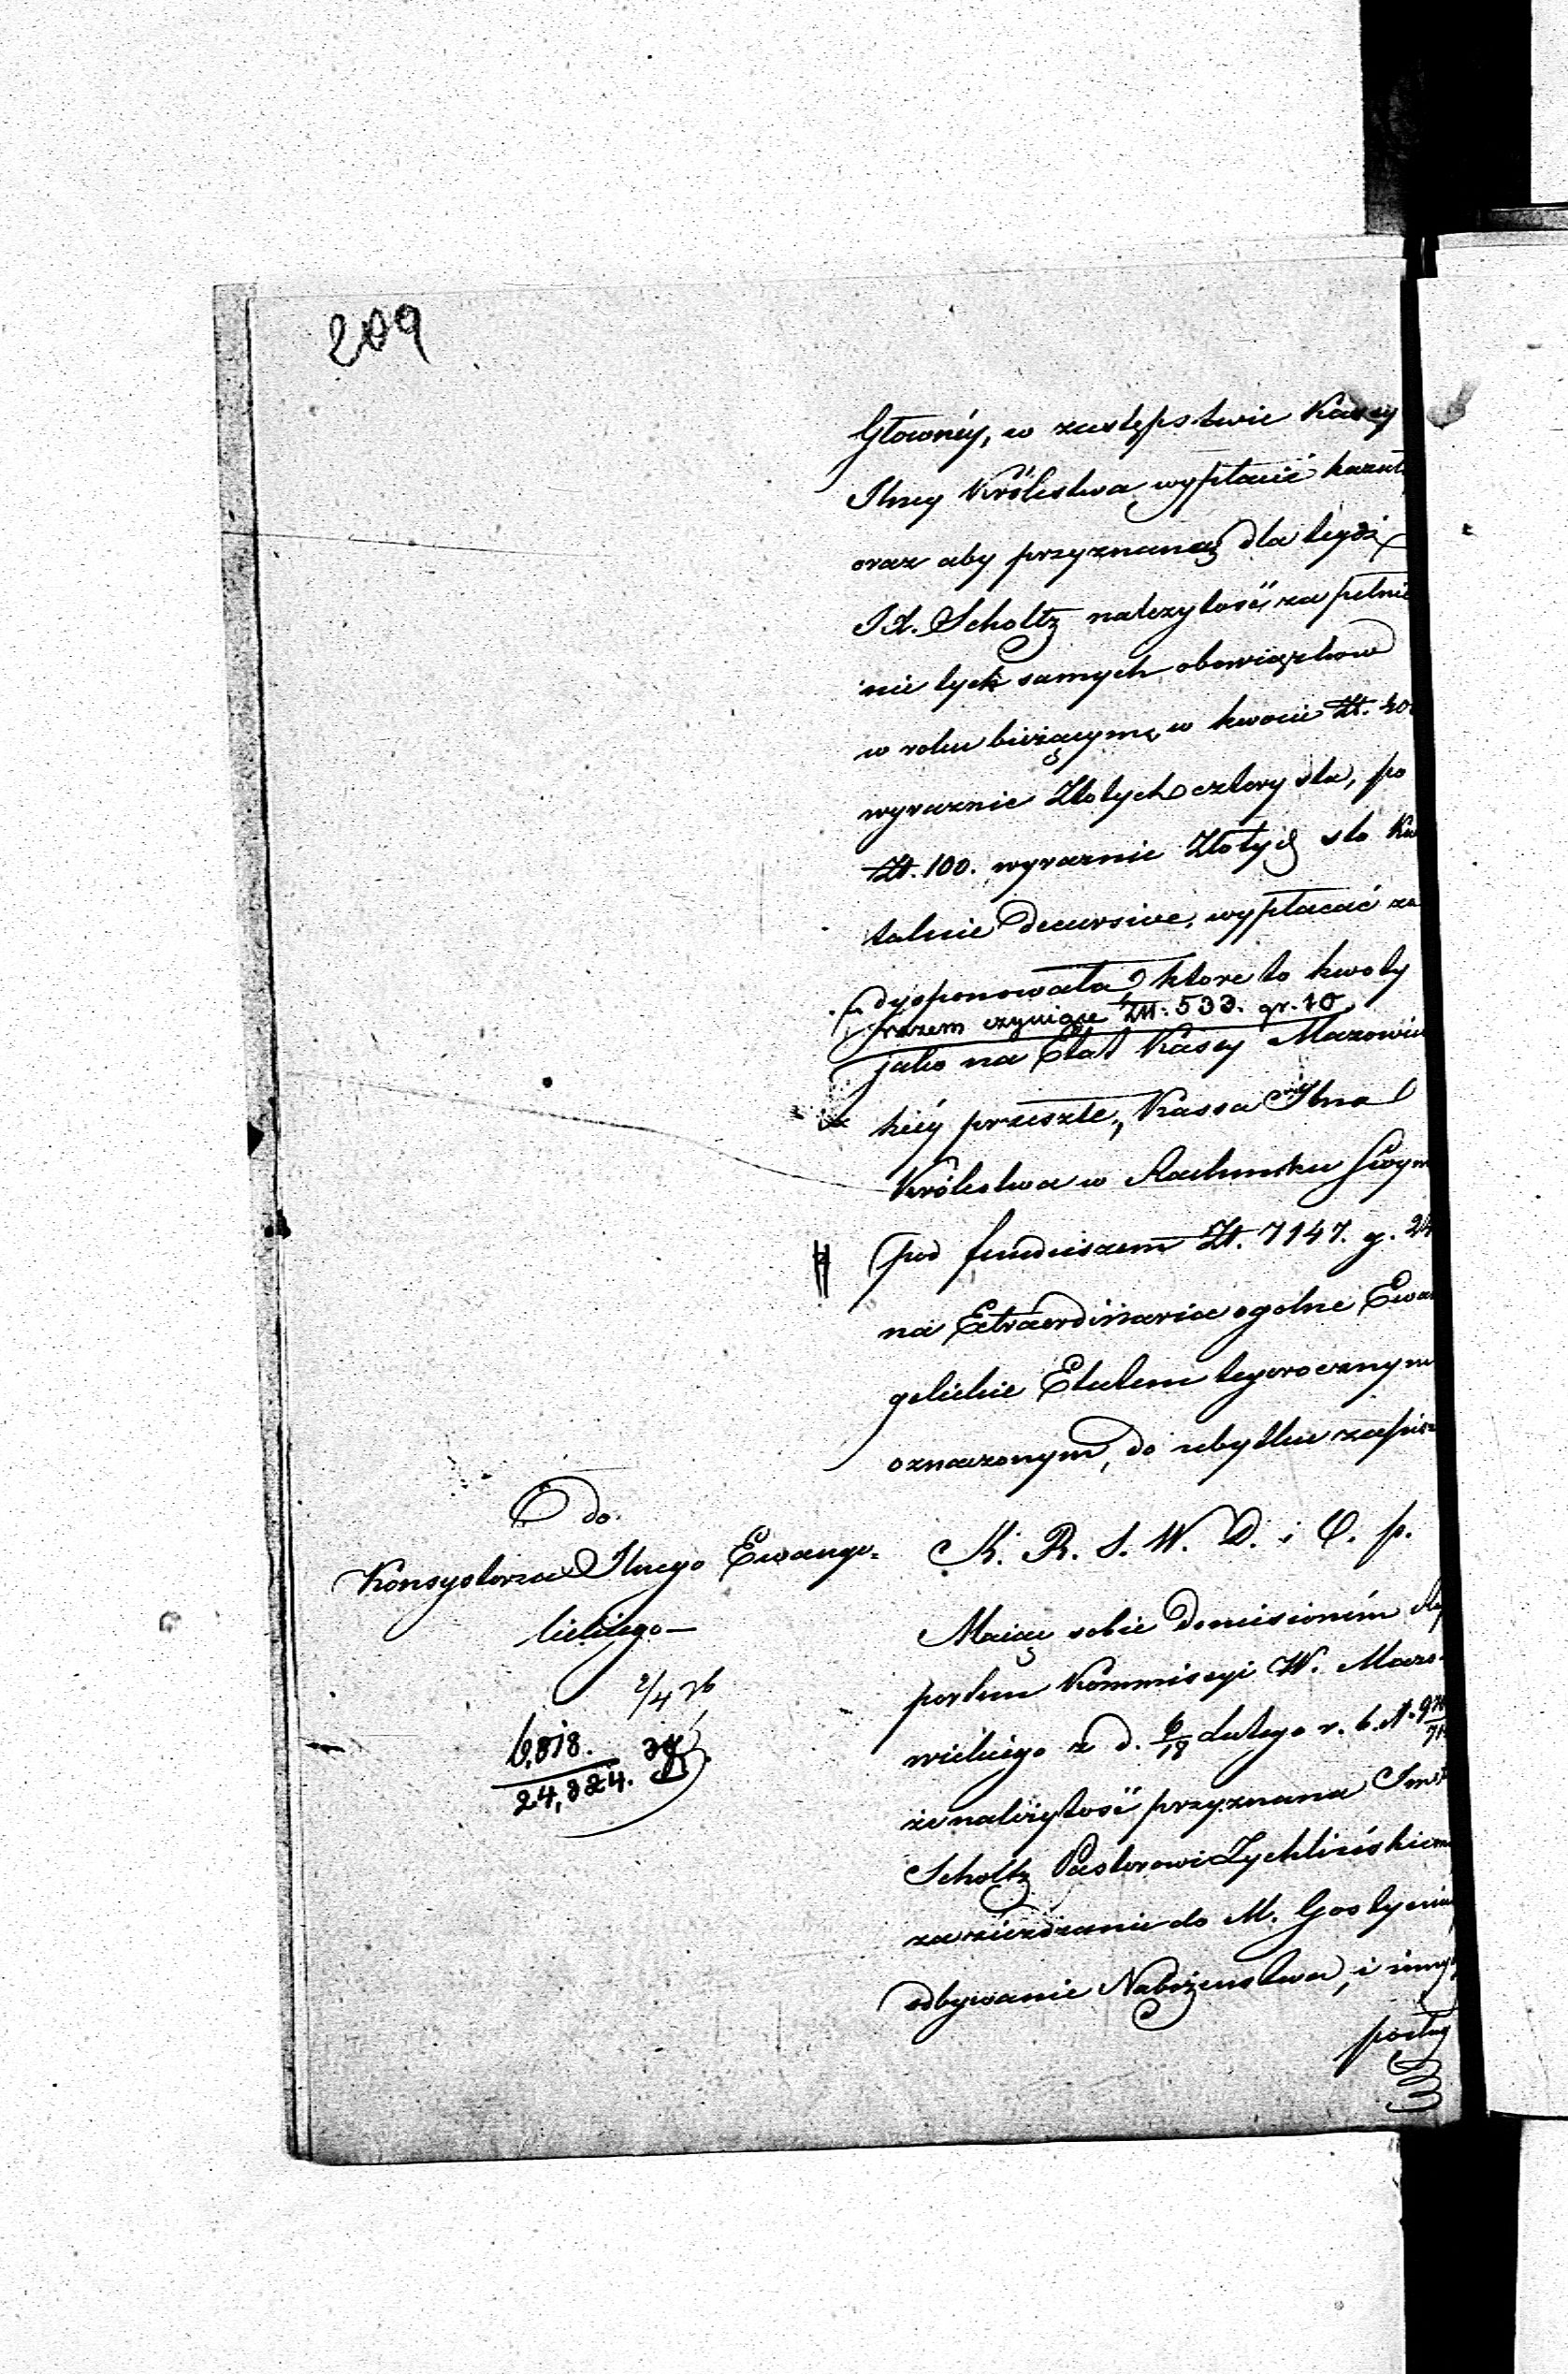 209
Głownéy, w zastępstwie Kassy
Głney Królestwa wypłacić kazała
oraz aby przyznaną dla tegoż
JX. Scholtz należytość za pełnie
nie tych samych obowiązkow
w roku bieżącym, w kwocie Zł. 400
wyraznie Złotych cztery sta, po
Zł. 100. wyraznie Złotych sto Kwar
talnie decursive, wypłacać za
dysponowała, ktore to kwoty
razem czyniące Zł. 533. gr. 10
jako na Etat Kassy Mazowiec
kiéy przeszłe, Kassa Głna
Królestwa w Rachunku swym
pod funduszem Zł. 7147. g. 24
na Extraordinaria ogolne Ewan
gelickie Etatem tegorocznym
oznaczonym, do ubytku zapisze
do
Konsystorza Głnego Ewange-
lickiego
2/4 36
6,818.
24,824.
K. R. S. W. D. i O. p.
Maiąc sobie doniesioném Ra
portem Kommissyi W. Mazo-
wieckiego z d. 6/18 Lutego r. b. N.
że należytość przyznana
Scholtz Pastorowi Żychlińskiemu
za ziezdzanie do M. Gostynina
odbywanie Nabożenstwa, i innych
posług